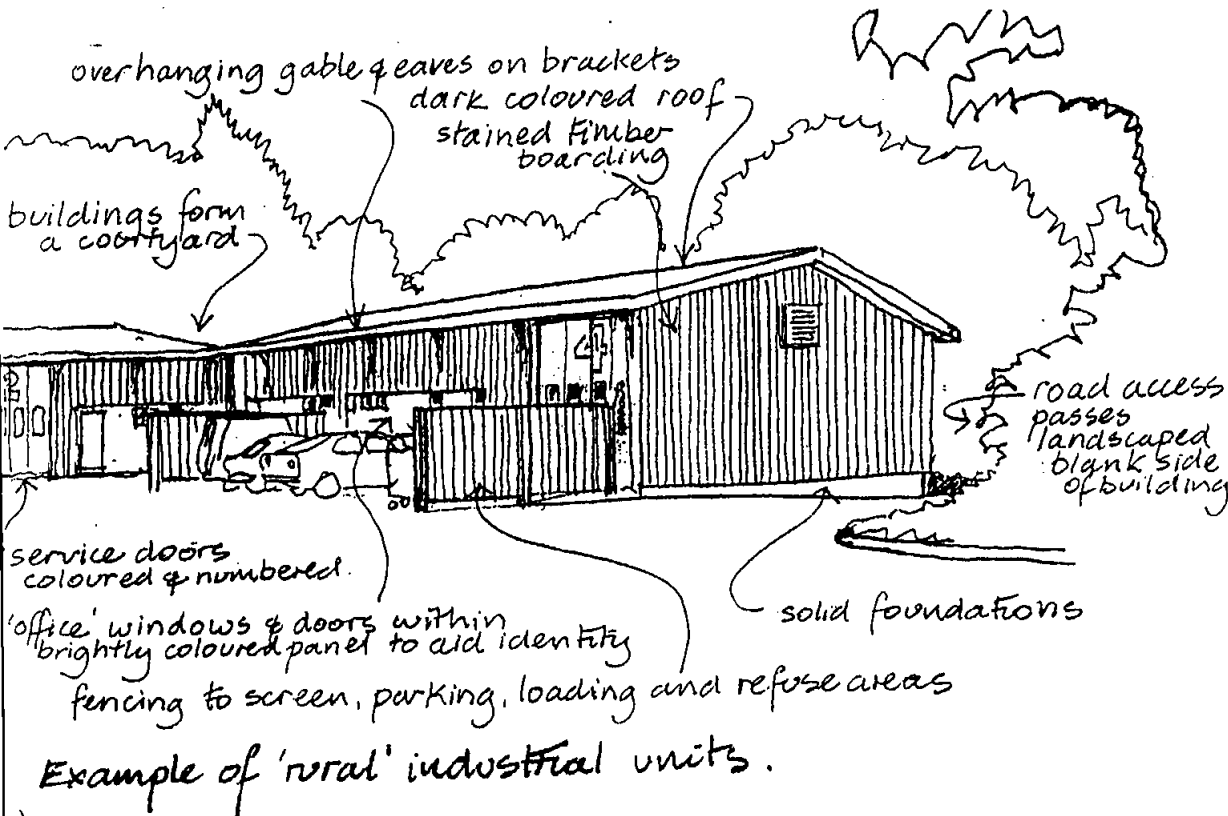 overhanging gable & eaves on brackets
dark coloured roof
stained timber
boarding
buildings form
a courtyard
4
2
road access
passes
landscaped
blank side
of building
service doors
coloured & numbered.
'office' windows & doors within
brightly coloured panel to aid identity
solid foundations
fencing to screen, parking, loading and refuse areas
Example of 'rural' industrial units.